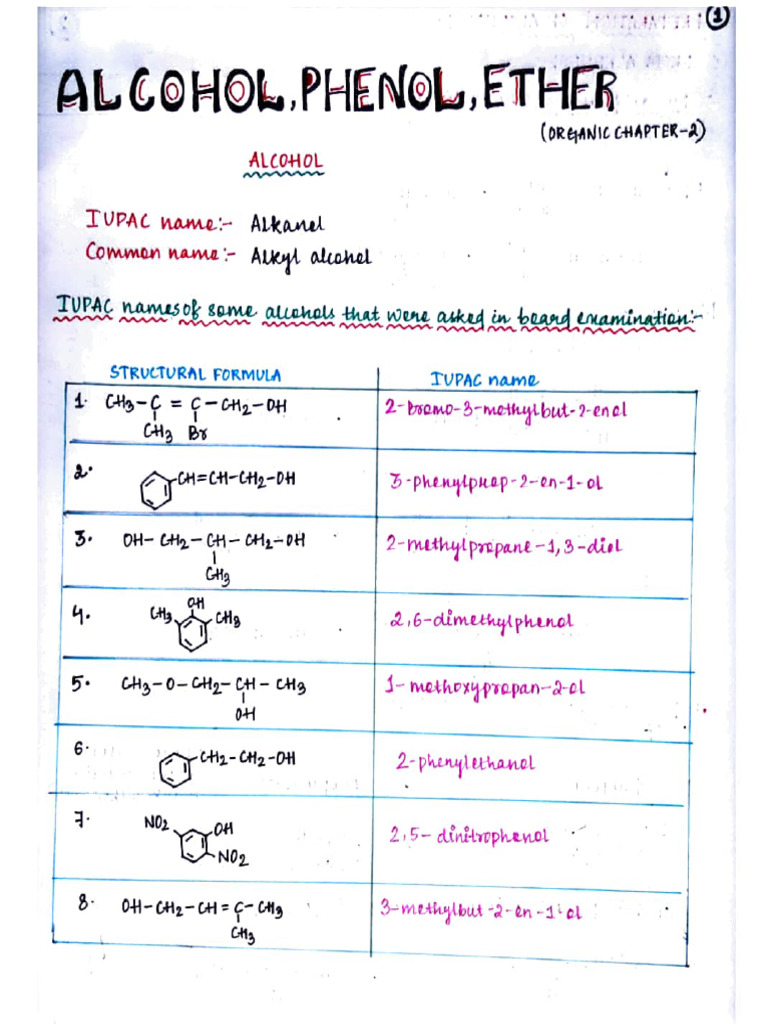 1
ALCOHOL, PHENOL, ETHER
(ORGANIC CHAPTER-2)
ALCOHOL
IUPAC name:- Alkanol
Common name:- Alkyl alcohol
IUPAC names of some alcohols that were asked in board examination:-
STRUCTURAL FORMULA IUPAC name
1. CH3-C=C-CH2-OH 2-bromo-3-methylbut-2-enol
CH3 Br
2. CH=CH-CH2-OH 3-phenylprop-2-en-1-ol
3. OH-CH2-CH-CH2-OH 2-methylpropane-1,3-diol
CH3
4. CH3 OH CH3 2,6-dimethylphenol
5. CH3-O-CH2-CH-CH3 1-methoxypropan-2-ol
OH
6. CH2-CH2-OH 2-phenylethanol
7. NO2 OH 2,5-dinitrophenol
NO2
8. OH-CH2-CH=C-CH3 3-methylbut-2-en-1-ol
CH3